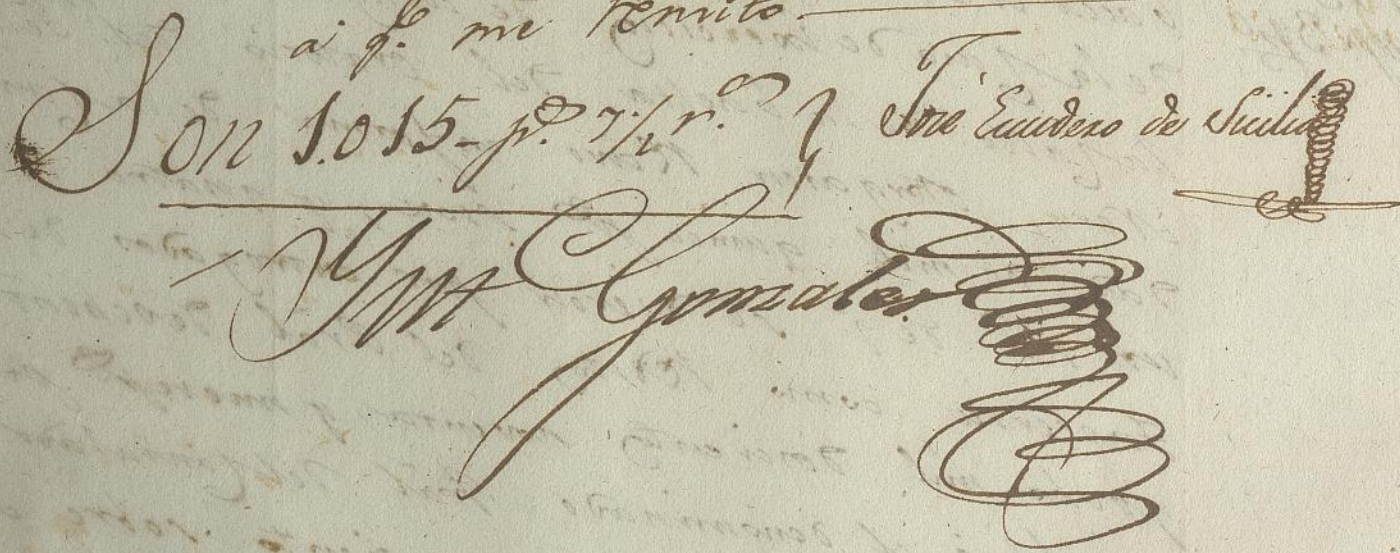 á qe. me remito.
Son 1.015- ps. 7½ rs.
José Escudero de Sicilia
Gonzales